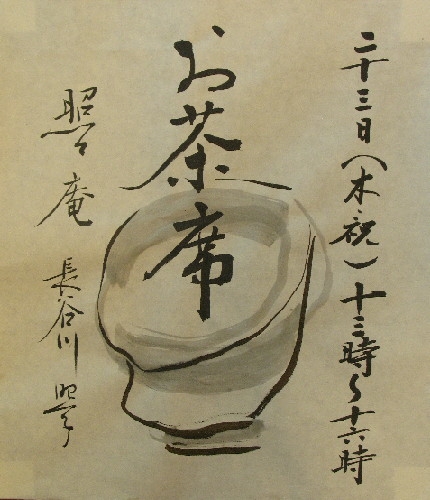 二十三日(木祝)十三時〜十六時
お茶席
照々庵 長谷川